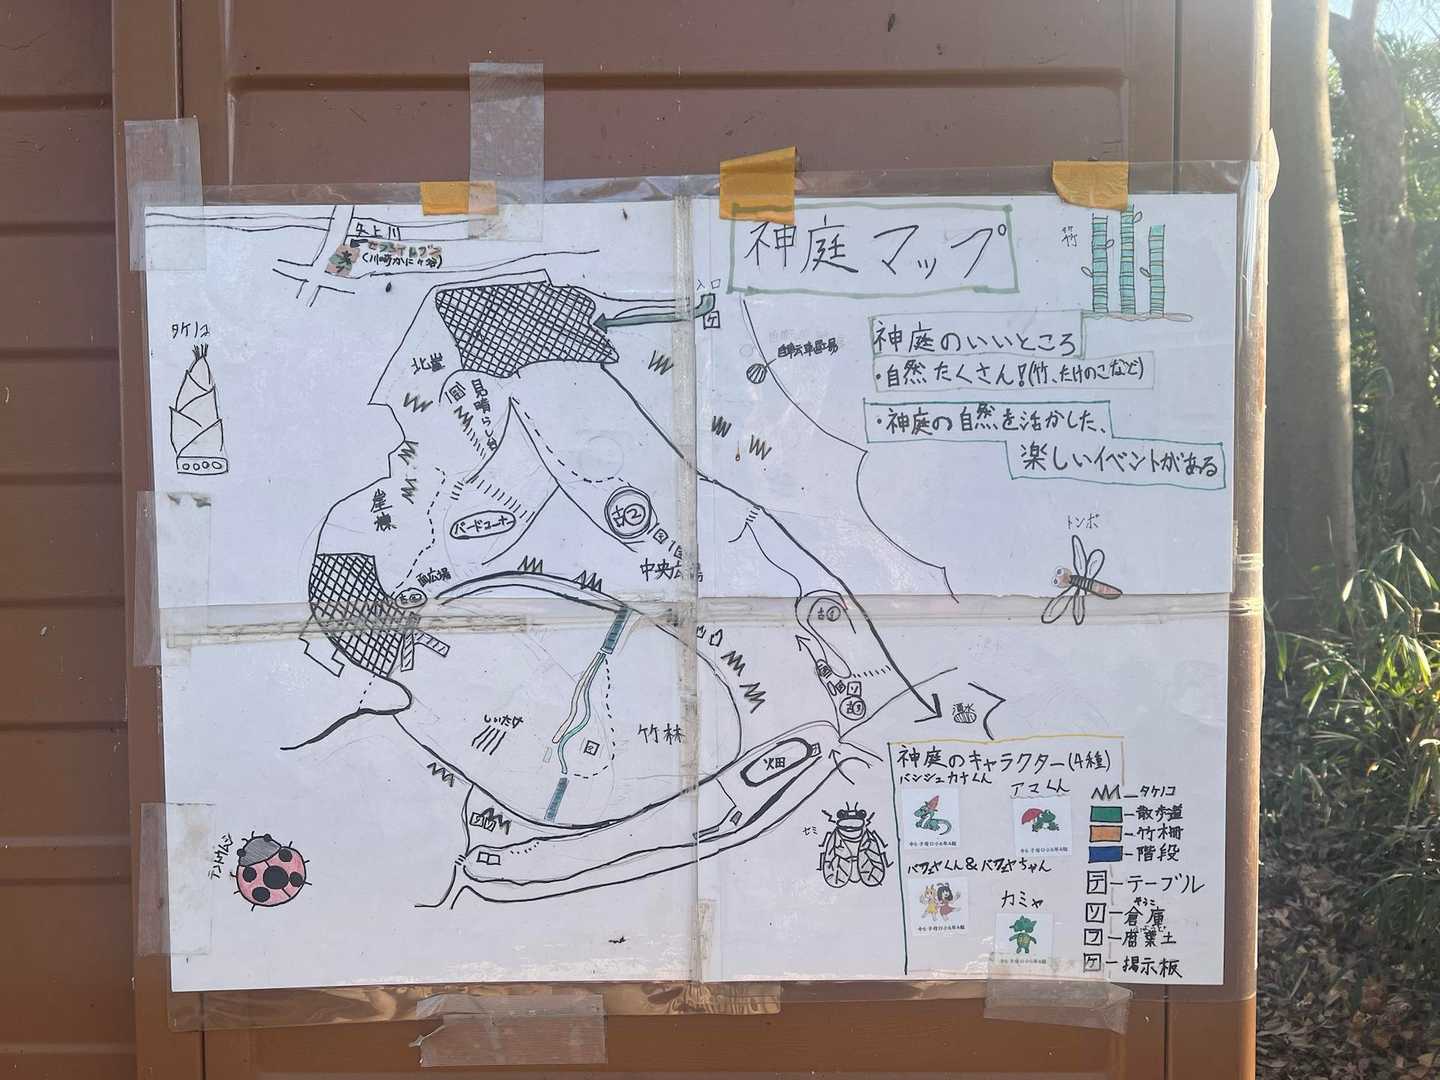 神庭マップ
竹
矢上川
セブンイレブン
(川崎かに
入口
ケ
タケノコ
北崖
見晴らし台
自転車置場
神庭のいいところ
・自然たくさん!(竹、たけのこなど)
・神庭の自然を活かした、
楽しいイベントがある
崖横
バードコーナー
古②
中央広場
トンボ
西広場
古①
ソ
古③
湧水
しいたけ
竹林
火田
セミ
テントウムシ
神庭のキャラクター(4種)
バンシュカナくん
アマくん
バフェヤくん&バフェヤちゃん
カミャ
タケノコ
散歩道
竹柵
階段
テーテーブル
そうこ
ソー倉庫
フー腐葉土
ケー掲示板